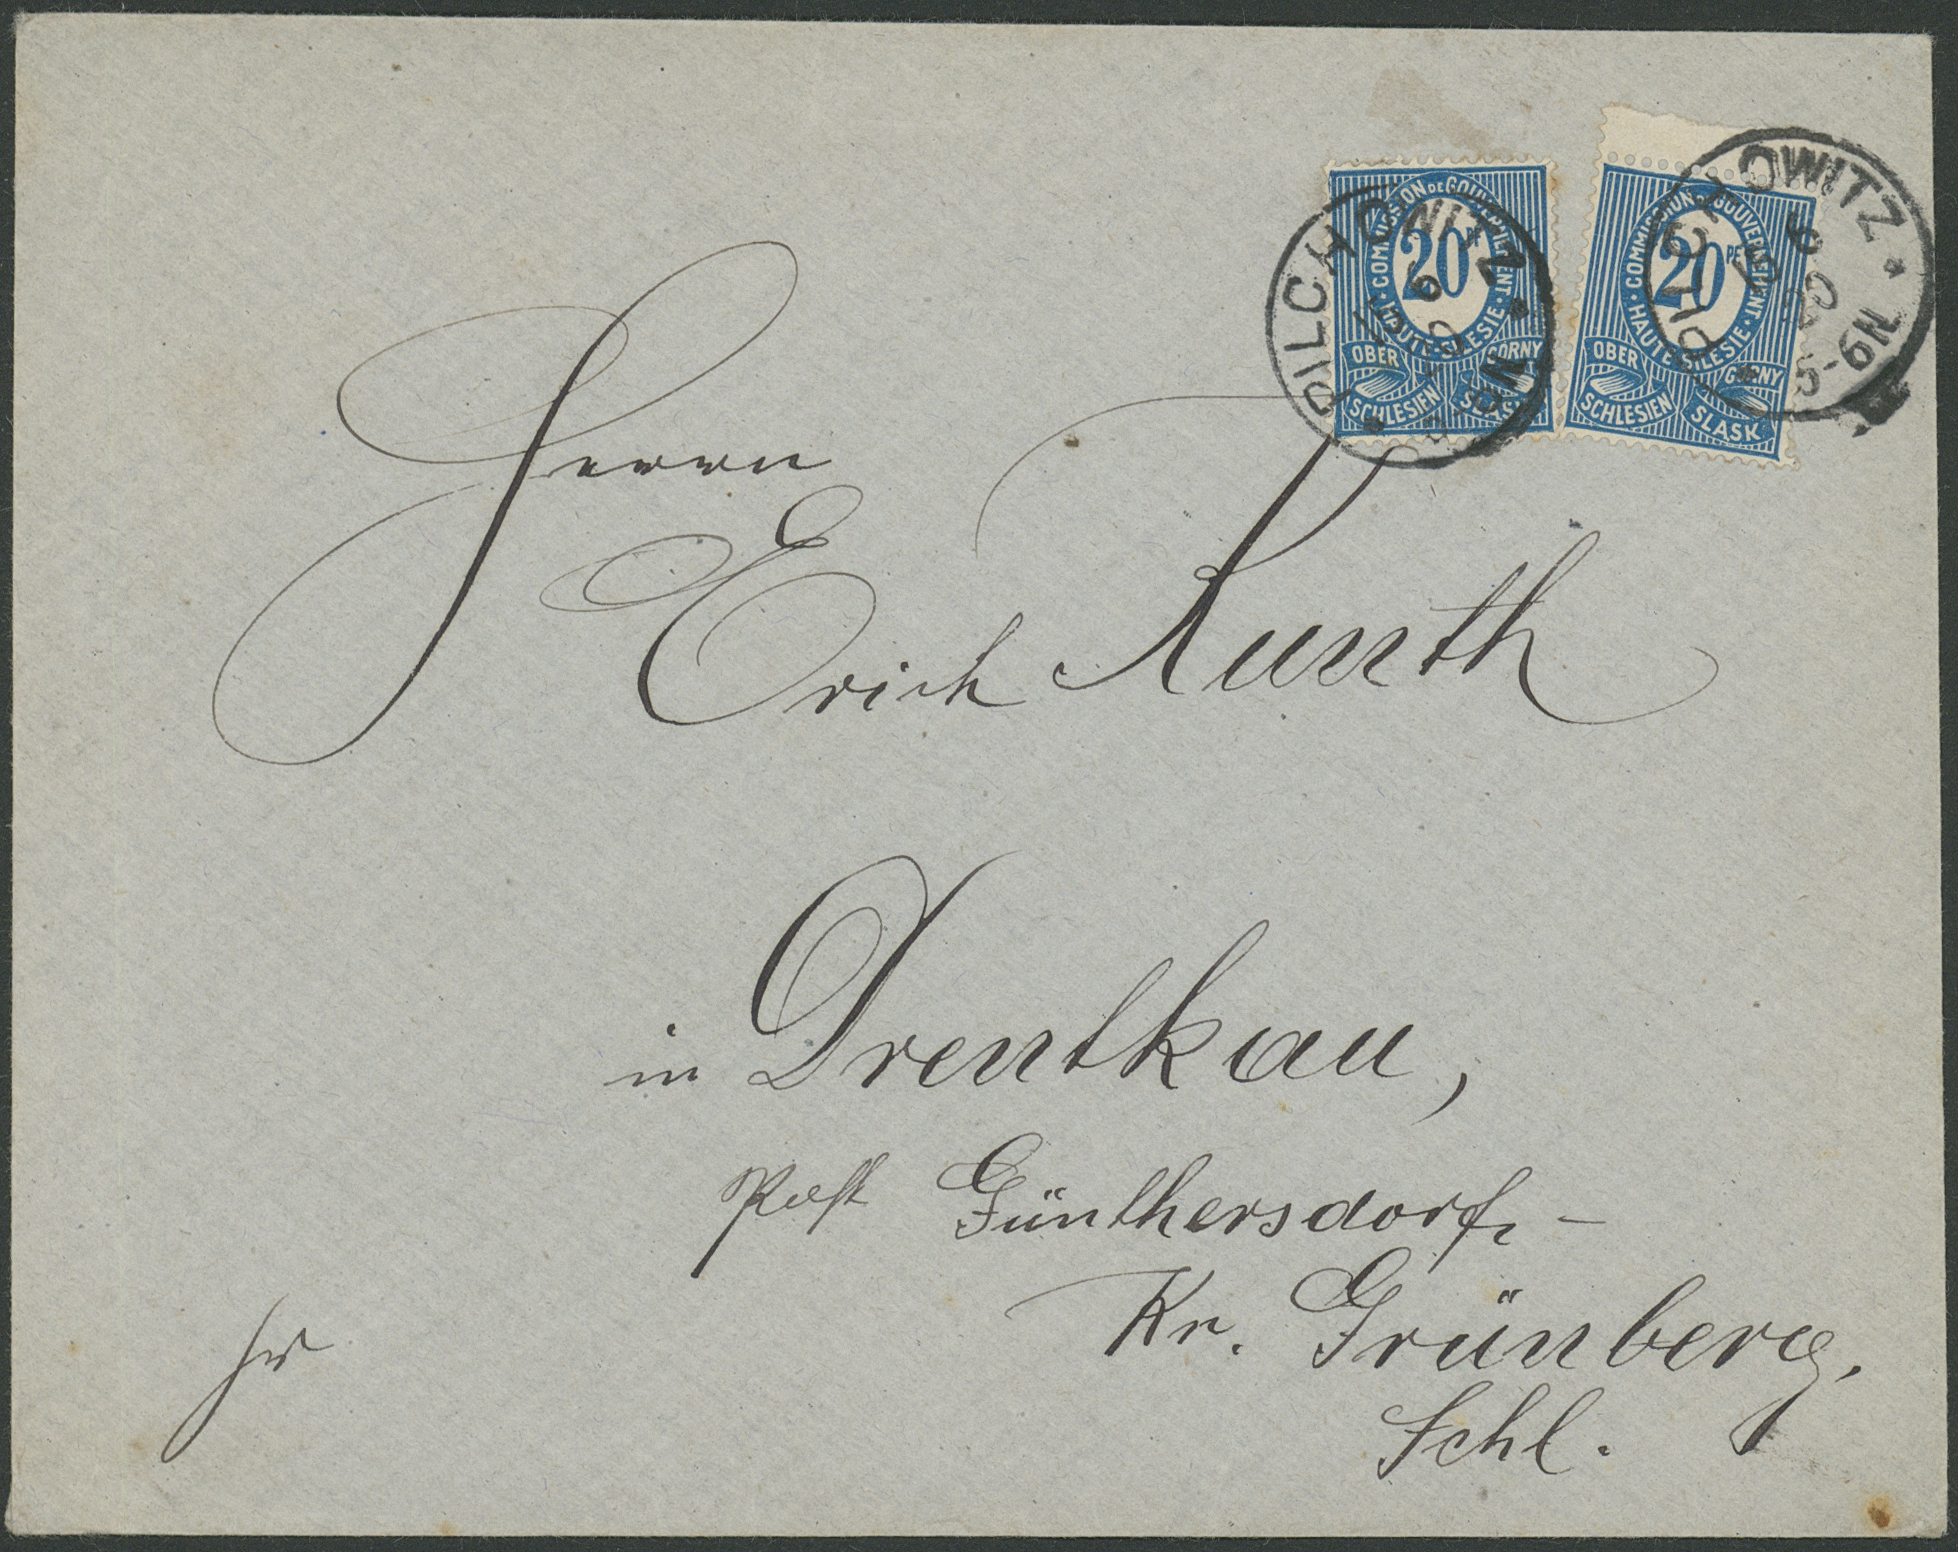 COMMISSION DE GOUVERNEMENT · HAUTE SILESIE ·
20 PF
OBER SCHLESIEN
GÓRNY ŚLĄSK
COMMISSION DE GOUVERNEMENT · HAUTE SILESIE ·
20 PF
OBER SCHLESIEN
GÓRNY ŚLĄSK
PILCHOWITZ
PILCHOWITZ
5-6N
Herrn
Erich Kunth
in Drentkau,
Post Günthersdorf, –
Kr. Grünberg,
Schl.